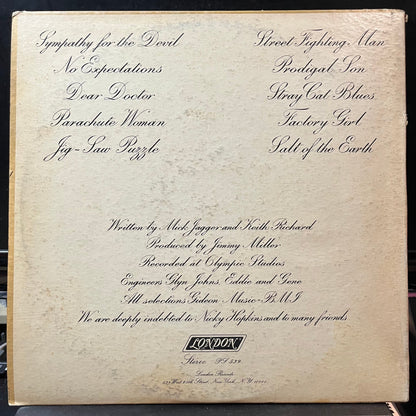 Sympathy for the Devil
No Expectations
Dear Doctor
Parachute Woman
Jig-Saw Puzzle
Street Fighting Man
Prodigal Son
Stray Cat Blues
Factory Girl
Salt of the Earth
Written by Mick Jagger and Keith Richard
Produced by Jimmy Miller
Recorded at Olympic Studios
Engineers Glyn Johns, Eddie and Gene
All selections Gideon Music-B.M.I
We are deeply indebted to Nicky Hopkins and to many friends
LONDON
Stereo PS 539
London Records
539 West 25th Street, New York, N.Y. 10001